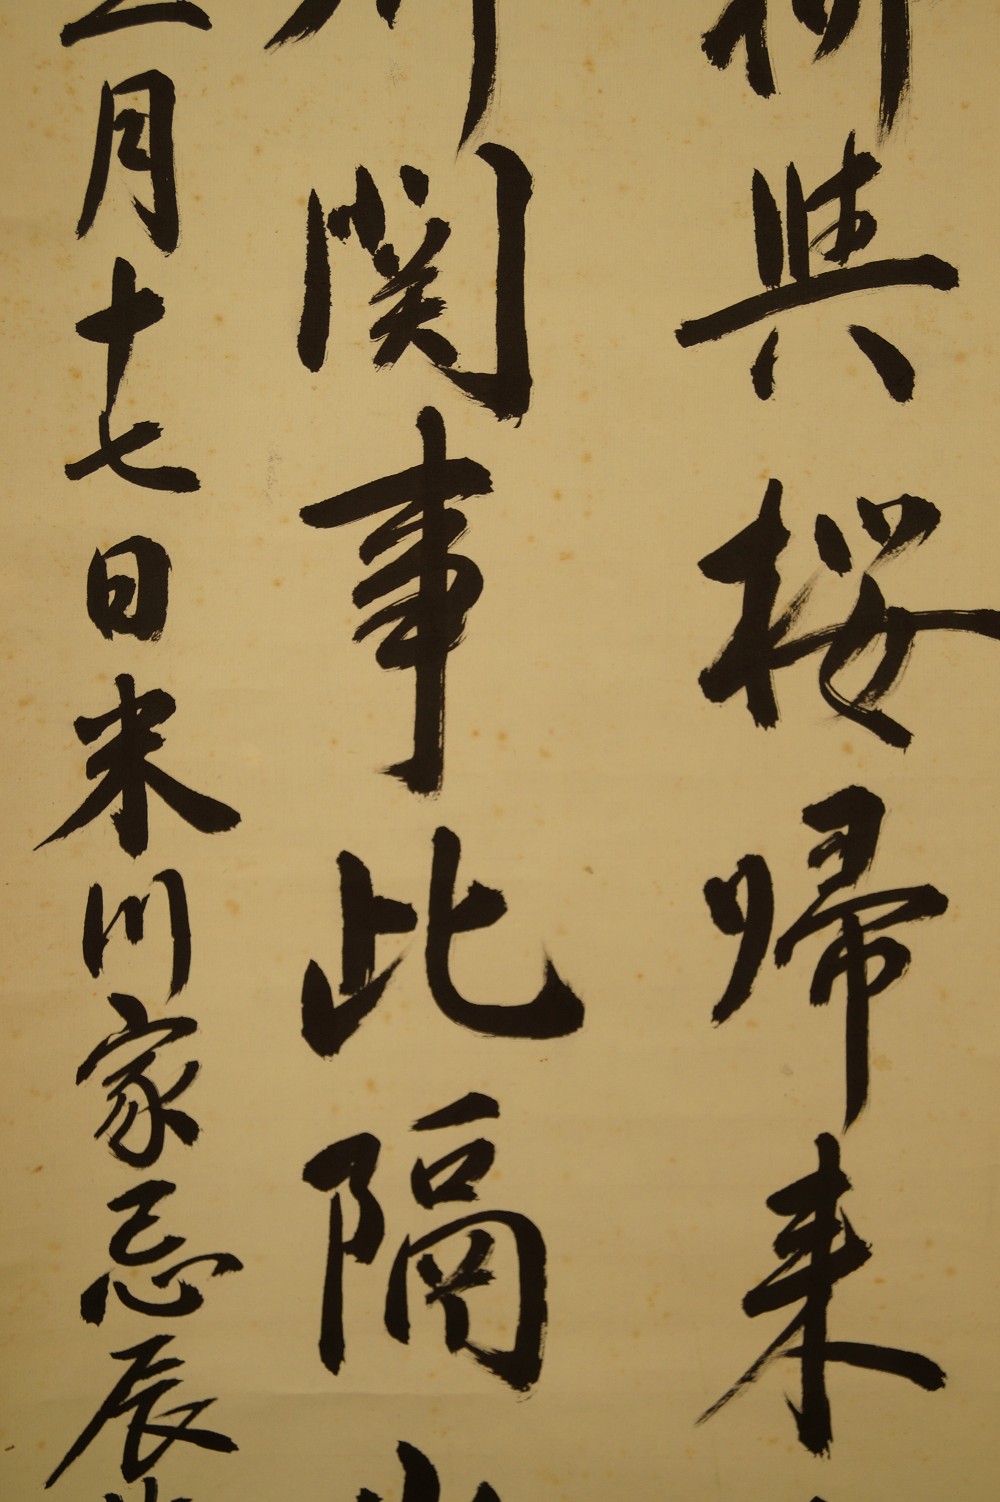 柳与桜帰来
関事此隔
月十七日米川家忌辰